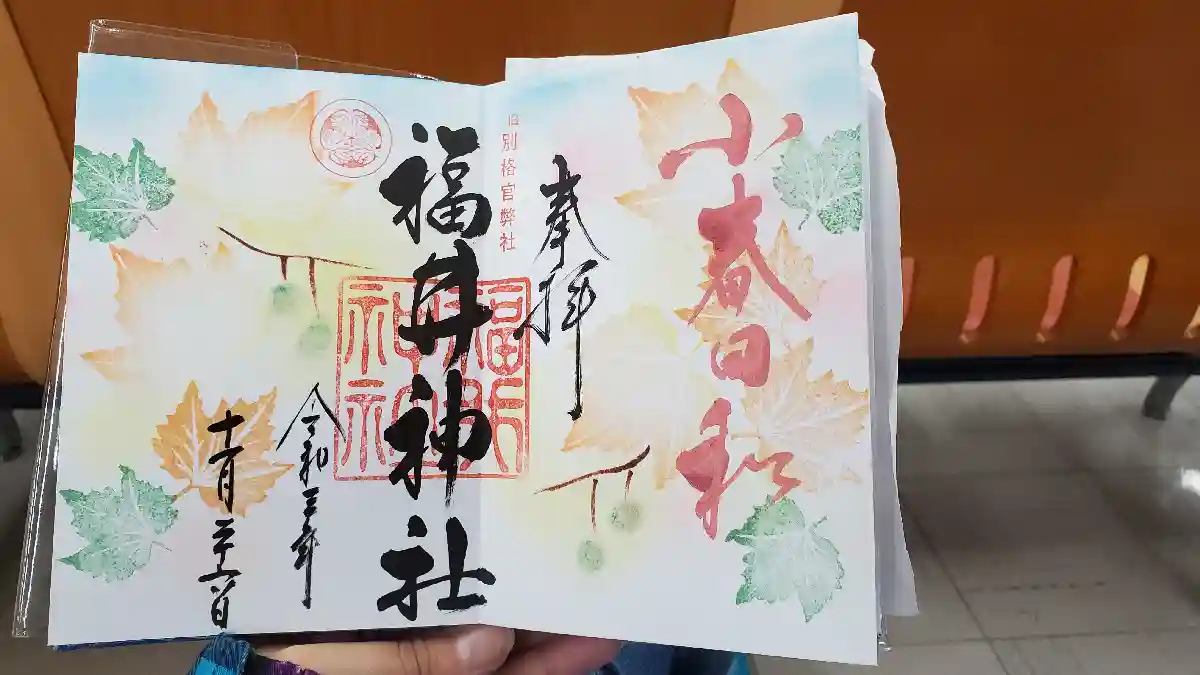 小春日和
奉拝
旧別格官弊社
福井神社
福井神社
令和三年
十一月二十